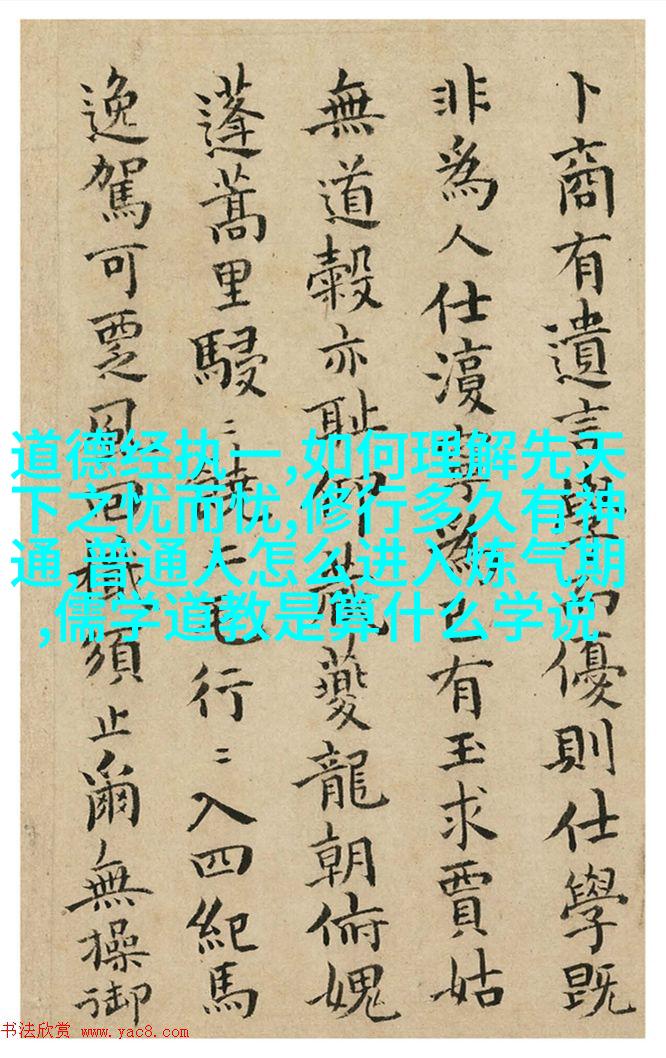 卜商有遺言學而優則仕學既
非為人仕為己有玉求賈姑
無道穀亦恥仰夔龍朝俯媿
蓬蒿里駸〻二毛行〻入四紀馬
逸駕可覂風須止爾無操御
道德经执一,如何理解先天
下之忧而忧,修行多久有神
通,普通人怎么进入炼气期
,儒学道教是算什么学说
书法欣赏 www.yac8.com